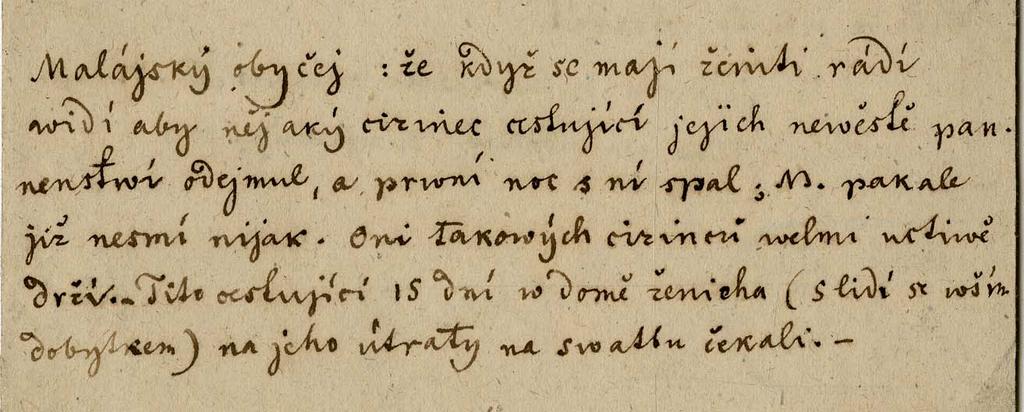 Malájský obyčej : že když se mají ženiti rádí
widí aby nějaký cizinec cestující jejich newěstě pan-
nenstwí odejmul, a prwní noc s ní spal; N. pak ale
již nesmí nijak. Oni takowých cizinců welmi uctiwě
drží. – Tito cestující 15 dní w domě ženicha (s lidí se wším
dobytkem) na jeho útraty na swatbu čekali. –